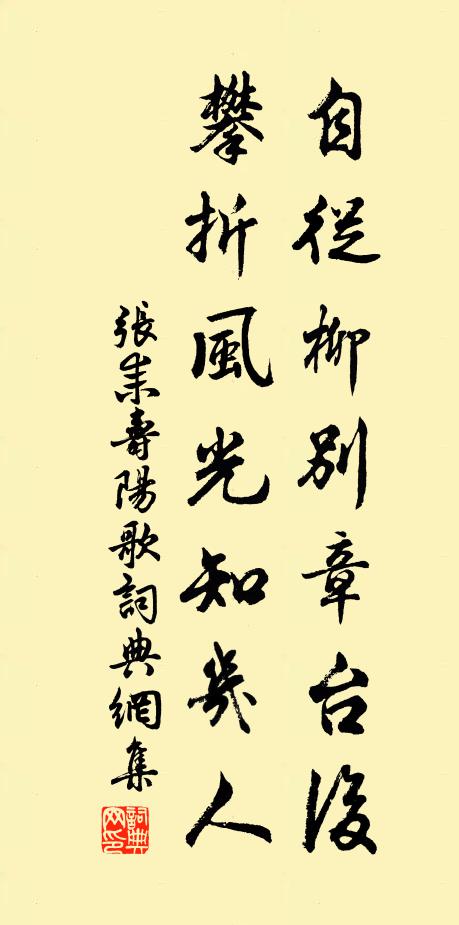 自從柳別章台後
攀折風光知幾人
張耒壽陽歌詞典網集
詞典網印